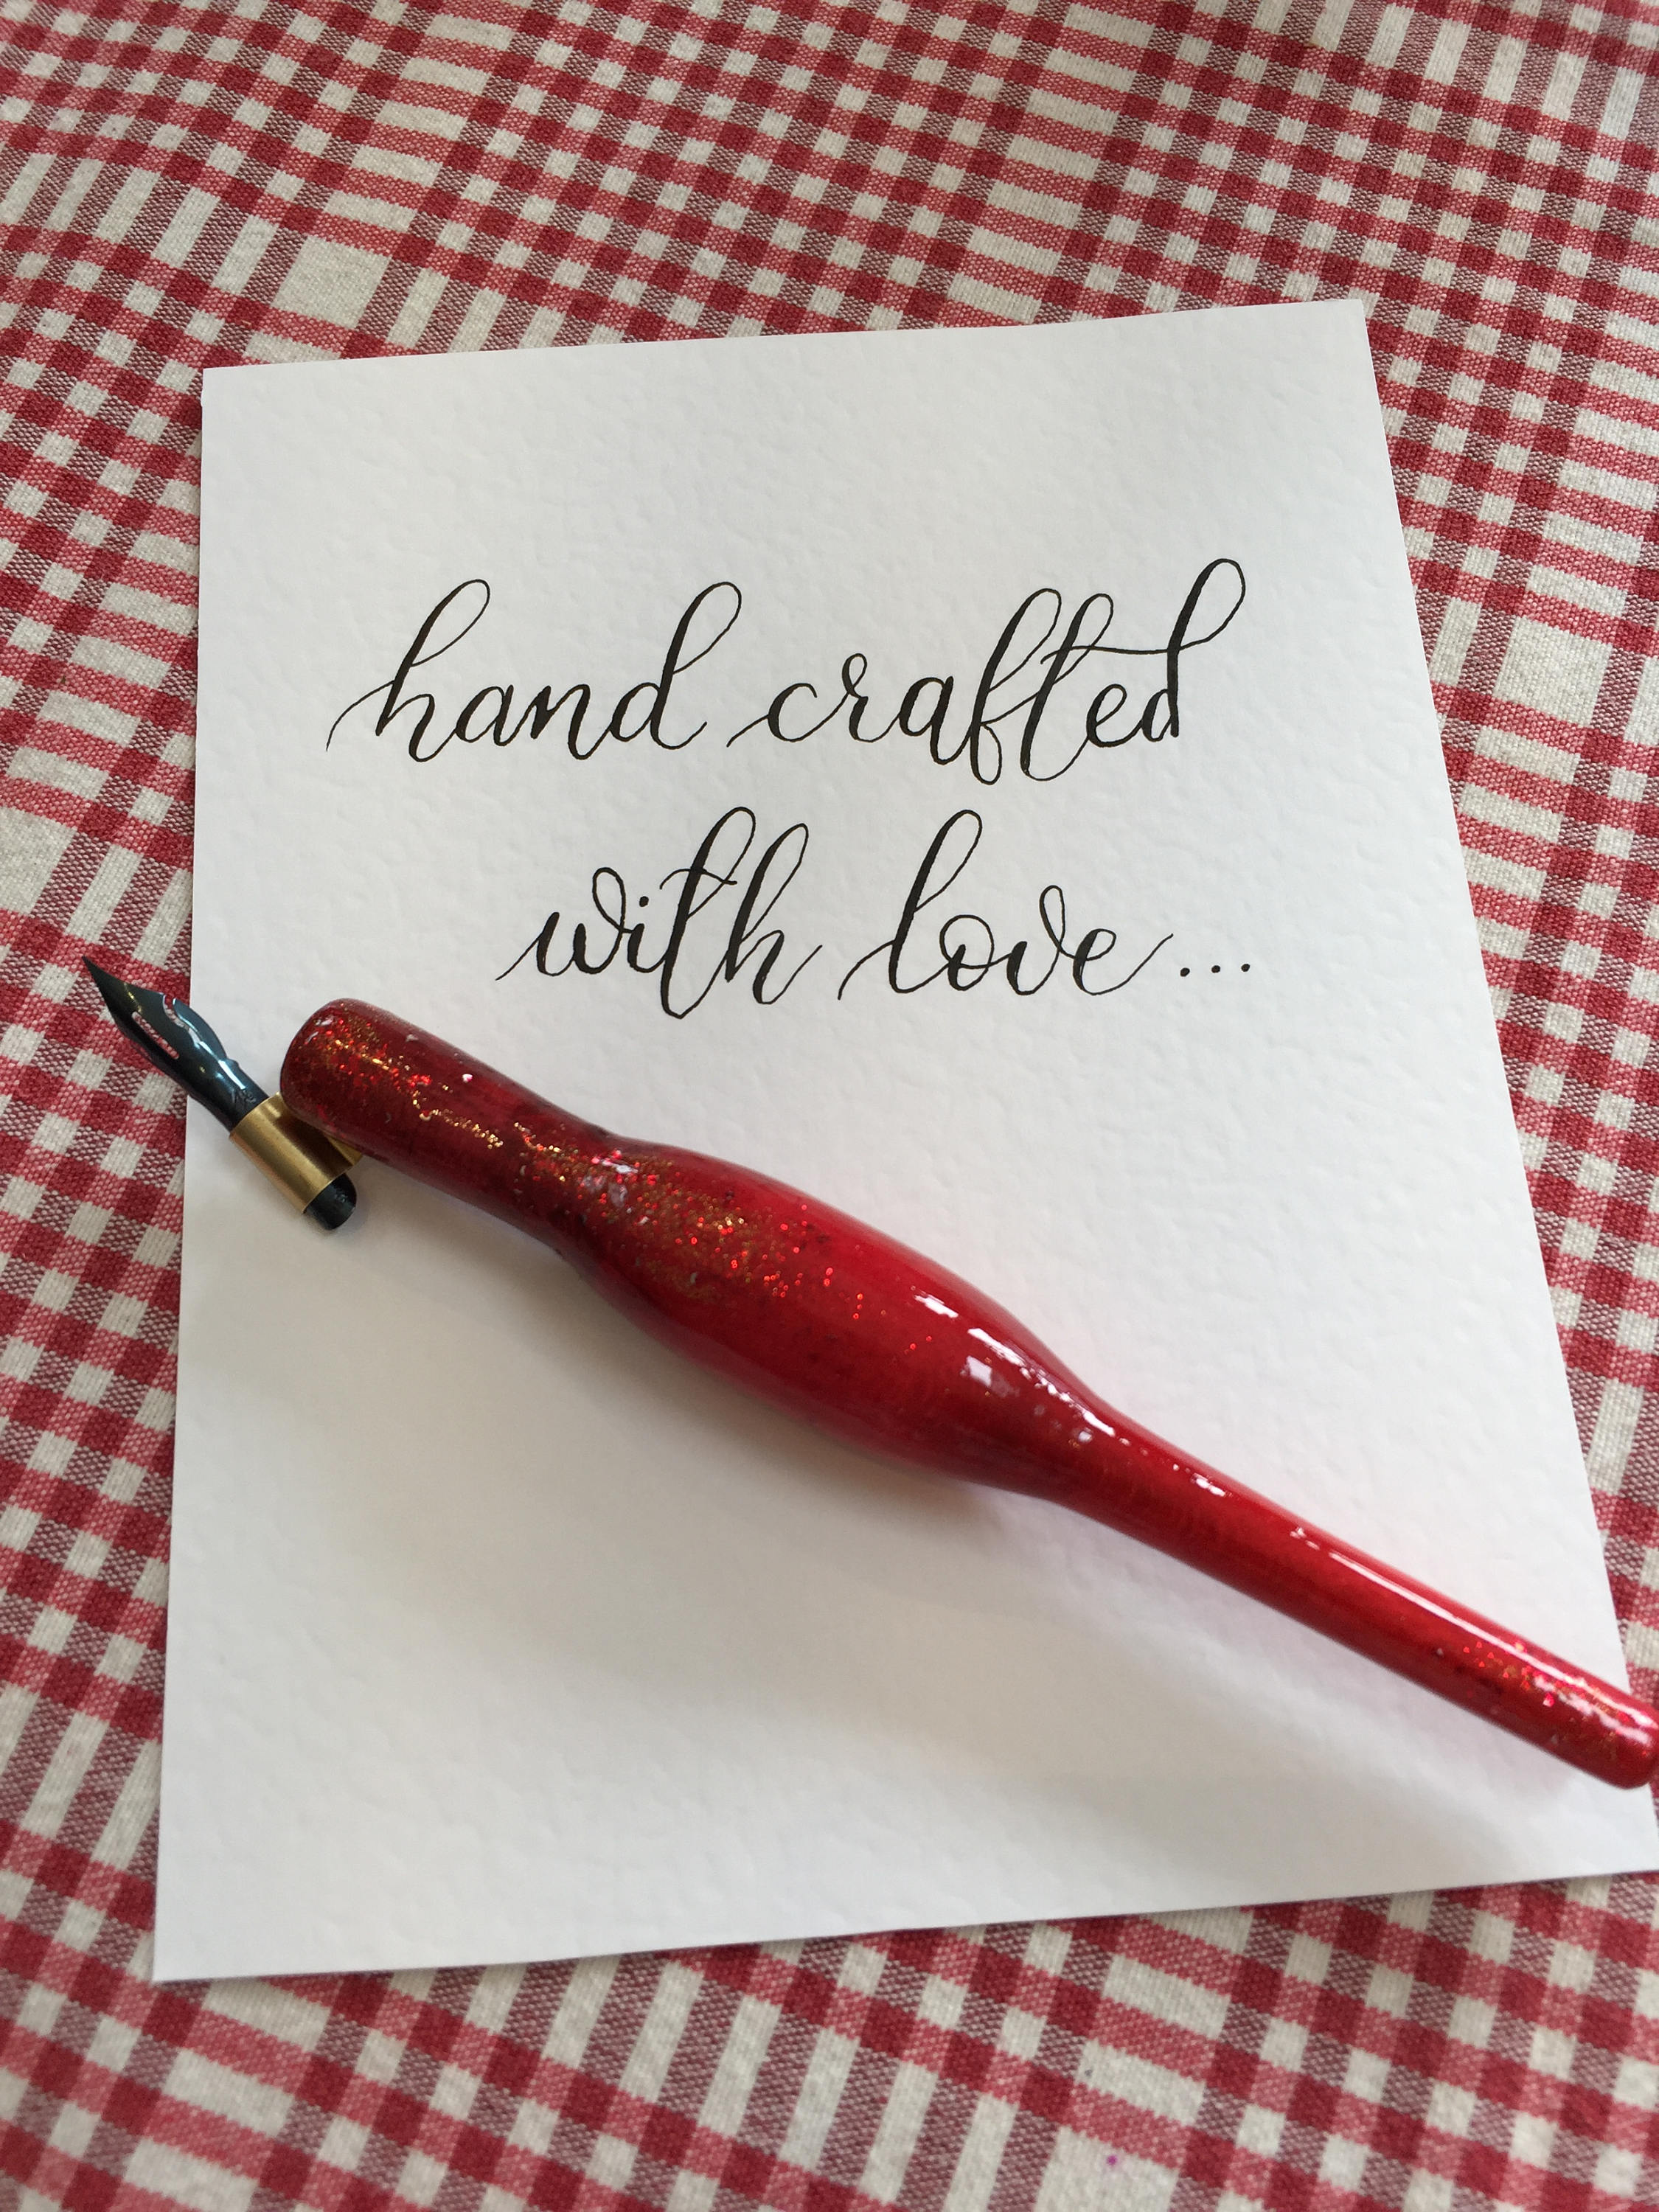 hand crafted
with love...